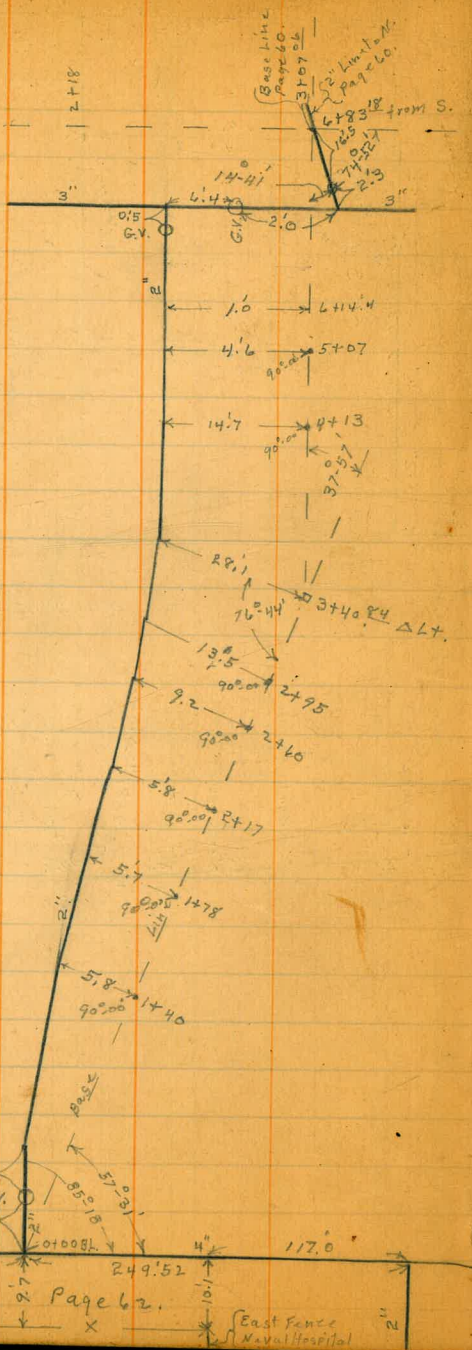 2+18
{Base Line
Page 60.
3+07 06
2" Line to N.
Page 60.
6+83.18 from S.
16.5
74°-52'
2.3
14°-41'
3"
6.4
3"
0.5
G.V.
G.V.
2.0
2"
1.0 6+14.4
4.6 5+07
90°-00'
14.7 4+13
90°-00'
37°-57'
28.1
3+40.84 Δ Lt.
76°-44'
13.0
90°-00' 2+95
9.2
90°-00' 2+60
5.8
90°-00' 2+17
5.7
90°-00' 1+78
Line
2"
5.8
90°-00' 1+40
Base
57°-31'
85°-18'
2"
0+00
4" 117.0
249.52
9.7
10.1
2"
Page 62.
X
{East Fence
Naval Hospital